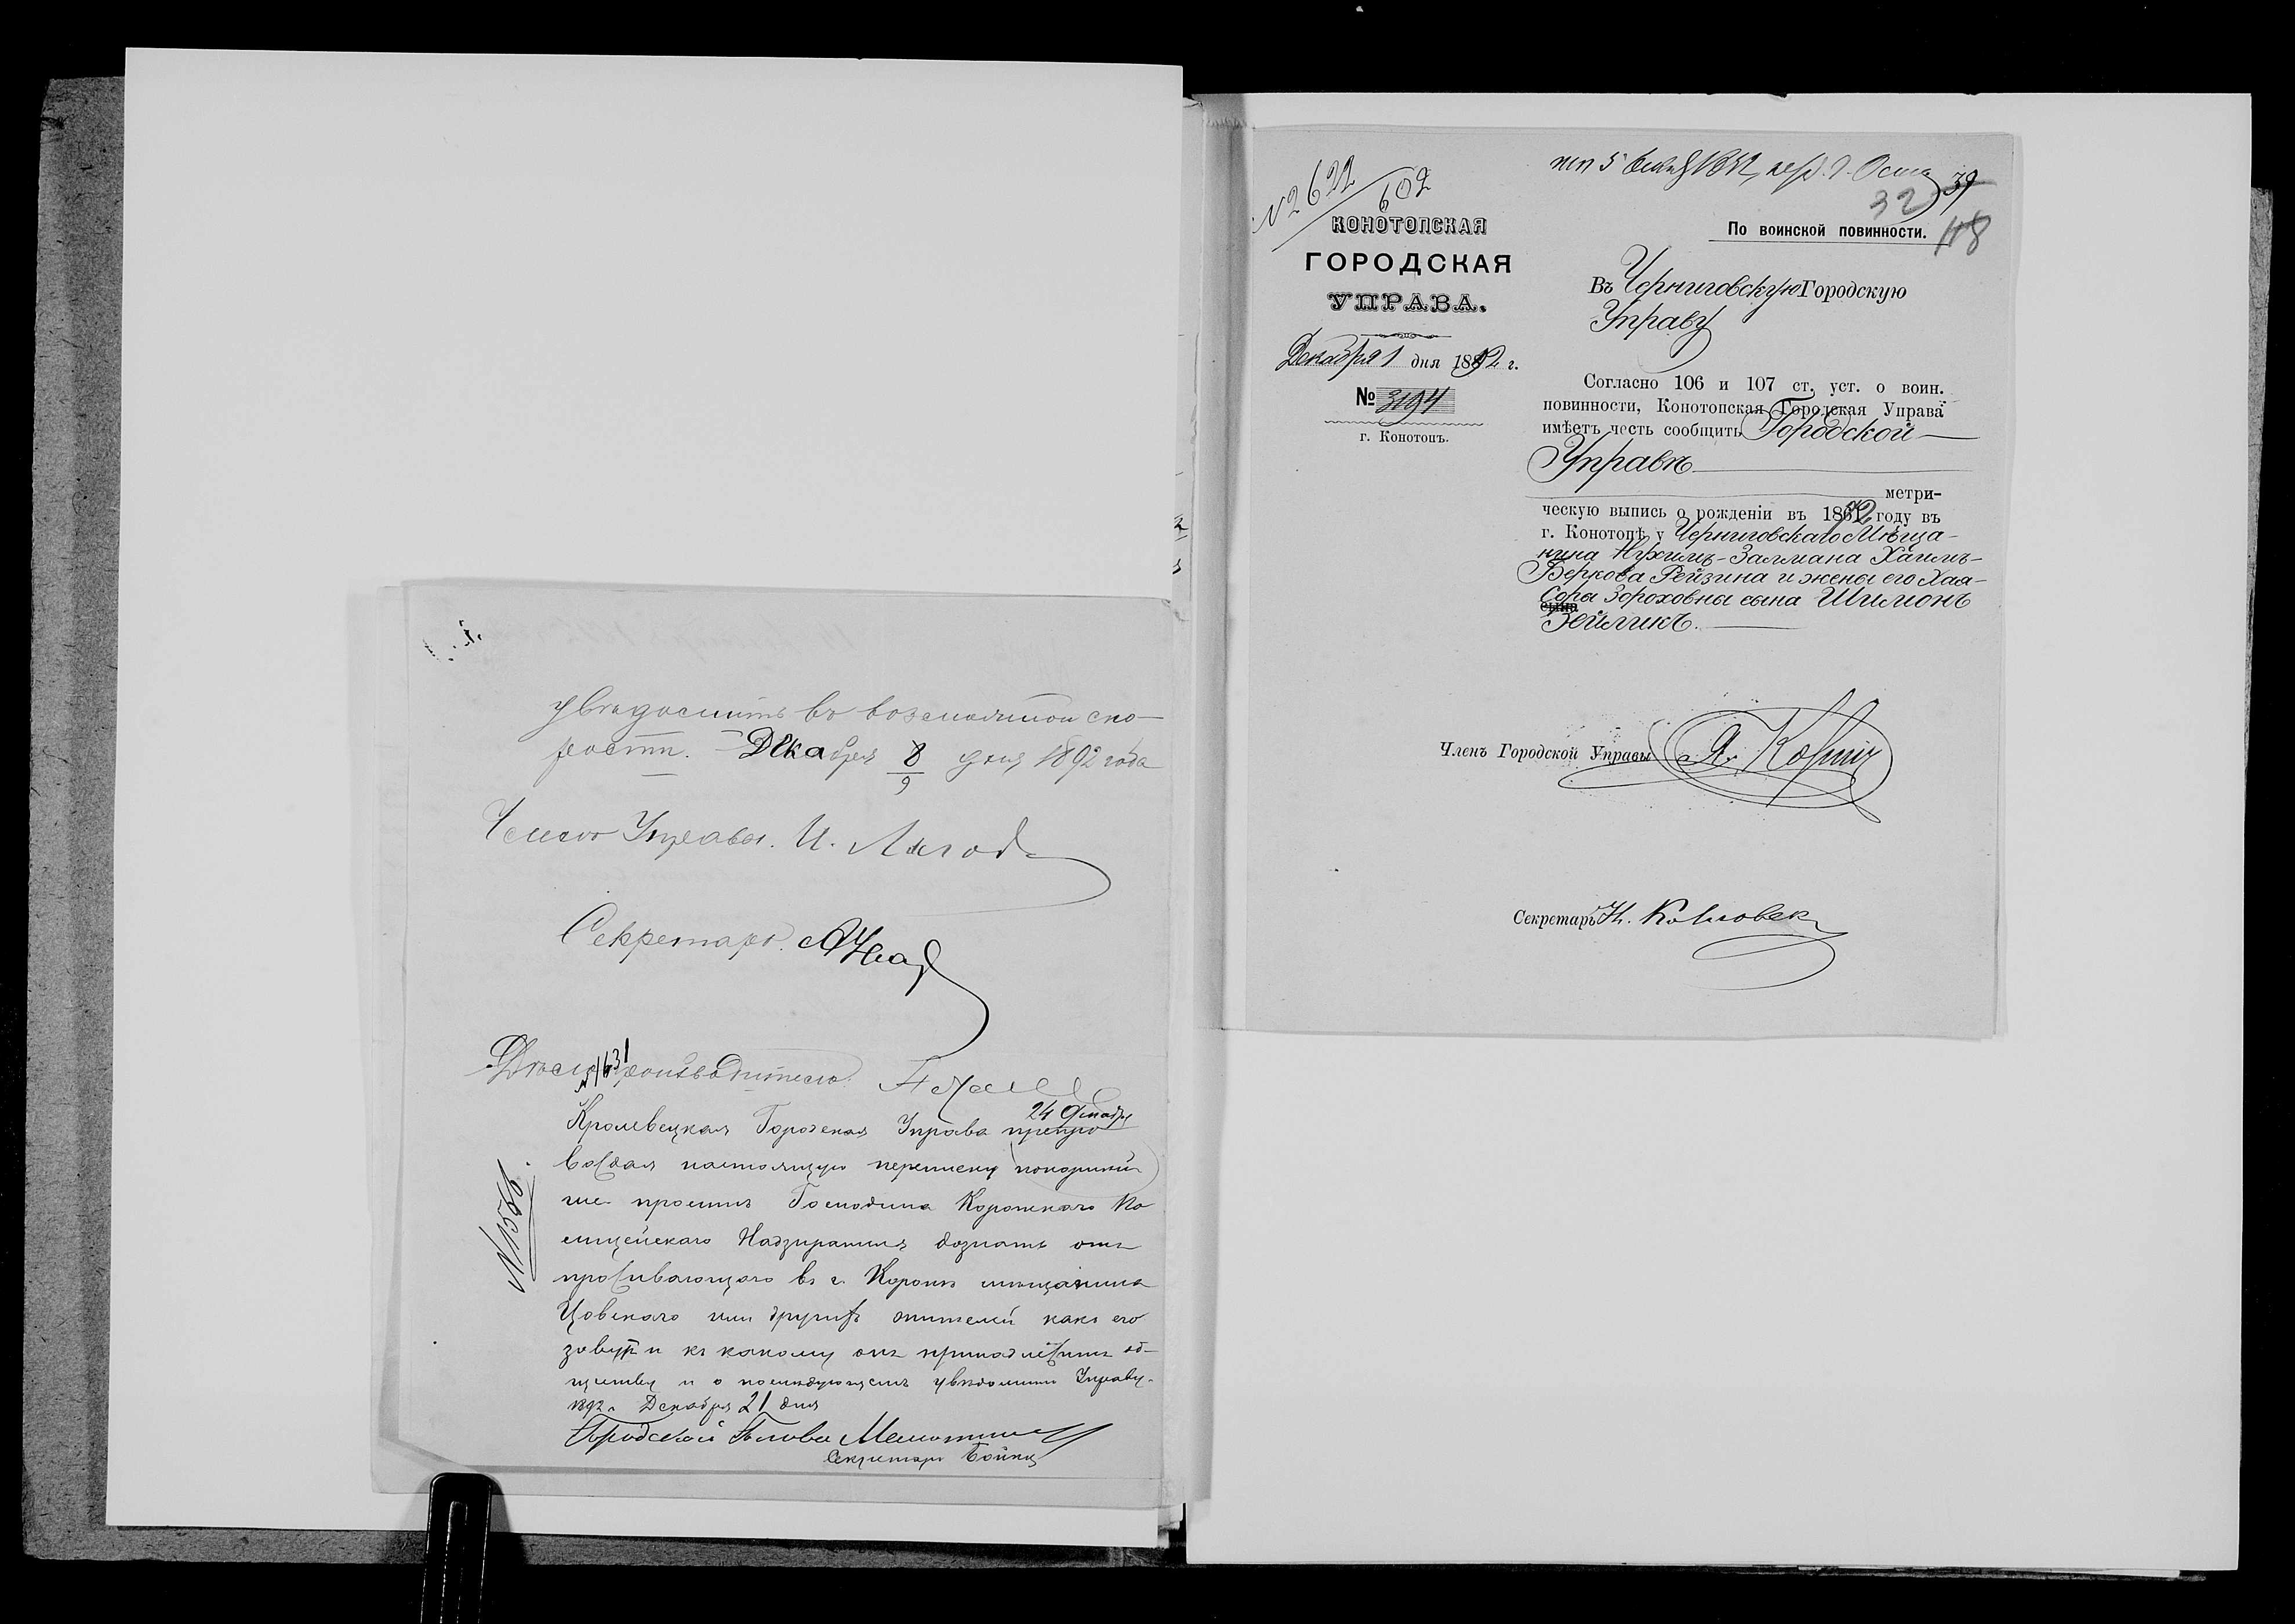 увѣдомить въ возможной ско-
рости. Декабря 8/9 дня 1892 года
Членъ Управы. И.
Секретарь.
№ 1631
Дѣлопроизводитель
24 Декабря
Кролевецкая Городская Управа препро
вождая настоящую переписку покорнѣй
ше проситъ Господина Коропскаго По
лицейскаго Надзирателя дознать отъ
проживающаго въ г. Коропѣ мѣщанина
или другихъ жителей какъ его
зовутъ и къ какому онъ принадлежитъ об-
ществу и о послѣдующемъ увѣдомить Управу.
1892 г. Декабря 21 дня
Городской Голова
Секретарь Бойко
№ 1566.
№ 2622/602
пол 5 1892,
39
32
118
КОНОТОПСКАЯ
ГОРОДСКАЯ
УПРАВА.
Декабря 1 дня 1892 г.
№ 3194
г. Конотопъ.
По воинской повинности.
Въ Черниговскую Городскую
Управу
Согласно 106 и 107 ст. уст. о воин.
повинности, Конотопская Городская Управа
имѣетъ честь сообщить Городской
Управѣ
метри-
ческую выпись о рожденіи въ 1872 году въ
г. Конотопѣ у Черниговскаго Мѣща-
нина Нухимъ-Залмана Хаимъ-
Беркова Рейзина и жены его Хая-
Соры Зороховны сына Шимонъ
сына
Зеймикъ.
Членъ Городской Управы
Секретарь